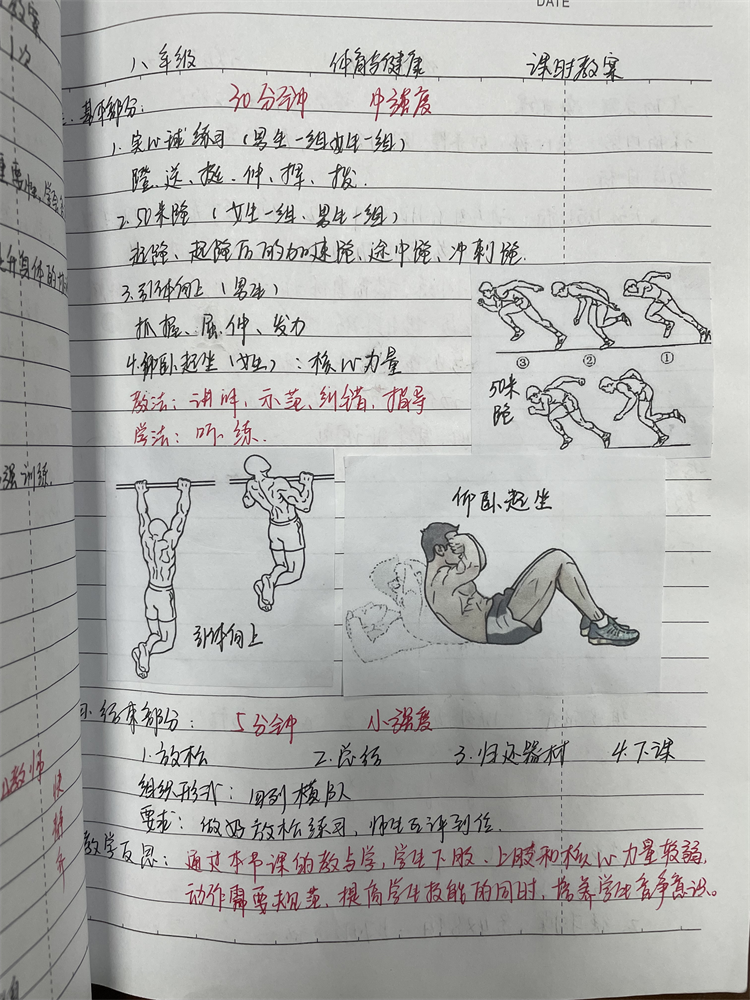 DATE
八年级 体育与健康 课时教案
三、基本部分: 30分钟 中强度
1. 实心球练习(男生一组女生一组)
蹬、送、挺、伸、挥、拨.
2. 50米跑(女生一组、男生一组)
起跑、起跑后的加速跑、途中跑、冲刺跑.
3. 引体向上(男生)
抓握、屈伸、发力
4. 仰卧起坐(女生):核心力量
教法:讲解、示范、纠错、指导
学法:听、练.
③ ② ①
50米
跑
引体向上
仰卧起坐
四. 结束部分: 5分钟 小强度
1. 放松 2. 总结 3. 归还器材 4. 下课
组织形式:四列横队
要求:做好放松练习,师生互评到位.
教学反思:通过本节课的教与学,学生下肢、上肢和核心力量较弱,
动作需要规范,提高学生技能的同时,培养学生竞争意识。
强训练.
教师